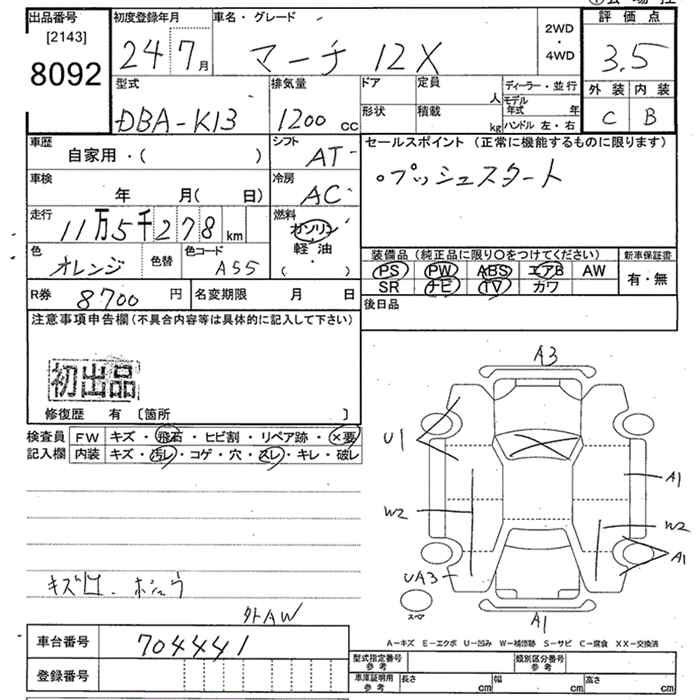 出品番号
[2143]
8092
初度登録年月
24 7月
車名・グレード
マーチ 12X
2WD
・
4WD
評価点
3.5
外装 内装
C B
型式
DBA-K13
排気量
1200 cc
ドア
定員
人
形状
積載
kg
ディーラー・並行
モデル年式 年
ハンドル 左・右
車歴
自家用・( )
シフト
AT
車検
年 月( 日)
冷房
AC
走行
11万5千278 km
燃料
ガソリン
軽油
( ・ )
色
オレンジ
色替
色コード
A55
R券
8700 円
名変期限 月 日
セールスポイント(正常に機能するものに限ります)
。プッシュスタート
装備品(純正品に限り○をつけてください)
PS PW ABS エアB AW
SR ナビ TV カワ
新車保証書
有・無
後日品
注意事項申告欄(不具合内容等は具体的に記入して下さい)
初出品
修復歴 有 〔箇所 〕
検査員
記入欄
FW キズ・飛石・ヒビ割・リペア跡・×要
内装 キズ・汚レ・コゲ・穴・スレ・キレ・破レ
A3
U1
A1
W2
W2
A1
UA3
スペア
A1
キズ凹
外AW
A-キズ E-エクボ U-凹み W-補修跡 S-サビ C-腐食 XX-交換済
車台番号
704441
登録番号
型式指定番号
参考
類別区分番号
参考
車庫証明用
参考
長さ cm
幅 cm
高さ cm